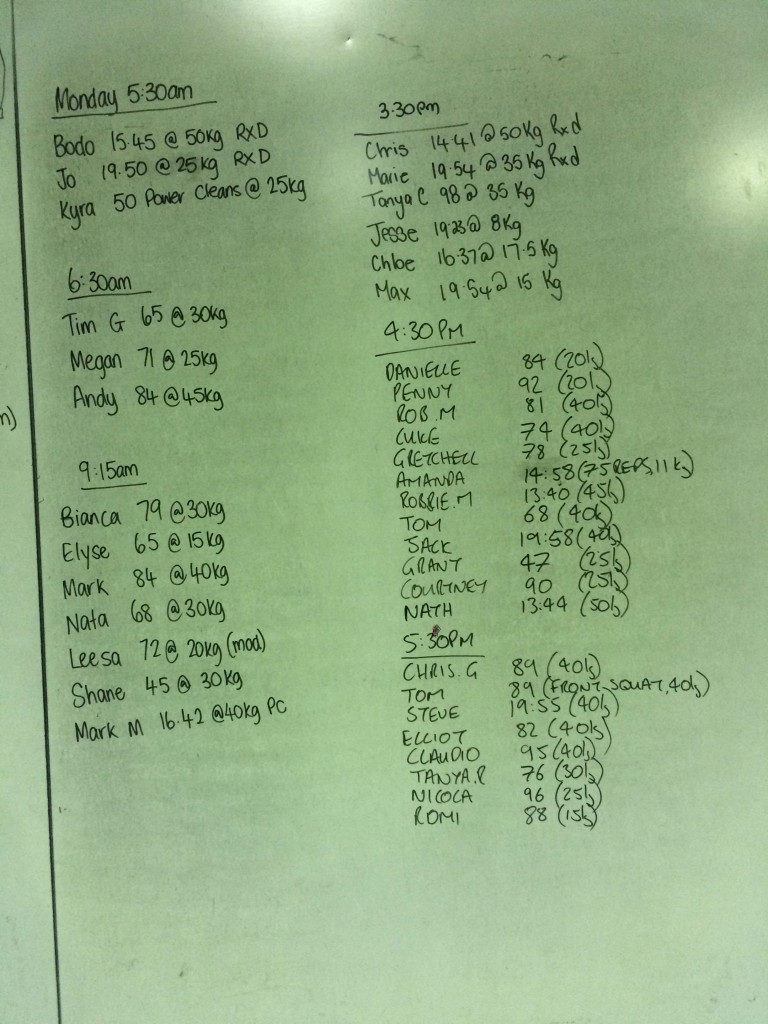 Monday 5:30am
Bodo 15.45 @ 50kg RXD
Jo 19.50 @ 25kg RXD
Kyra 50 Power Cleans @ 25kg
6:30am
Tim G 65 @ 30kg
Megan 71 @ 25kg
Andy 84 @ 45kg
9:15am
Bianca 79 @ 30kg
Elyse 65 @ 15kg
Mark 84 @ 40kg
Nata 68 @ 30kg
Leesa 72 @ 20kg (mod)
Shane 45 @ 30kg
Mark M 16.42 @ 40kg PC
3:30pm
Chris 14.41 @ 50Kg Rxd
Marie 19.54 @ 35Kg Rxd
Tanya C 98 @ 35 Kg
Jesse 19.23 @ 8Kg
Chloe 16.37 @ 17.5 Kg
Max 19.54 @ 15 Kg
4:30PM
DANIELLE 84 (20k)
PENNY 92 (20k)
ROB.M 81 (40k)
LUKE 74 (40k)
GRETCHELL 78 (25k)
AMANDA 14:58 (75 REPS, 11k)
ROBBIE.M 13:40 (45k)
TOM 68 (40k)
JACK 19:58 (40k)
GRANT 47 (25k)
COURTNEY 90 (25k)
NATH 13:44 (50k)
5:30PM
CHRIS.G 89 (40k)
TOM 89 (FRONT SQUAT, 40k)
STEVE 19:55 (40k)
ELLIOT 82 (40k)
CLAUDIO 95 (40k)
TANYA.R 76 (30k)
NICOLA 96 (25k)
ROMI 88 (15k)